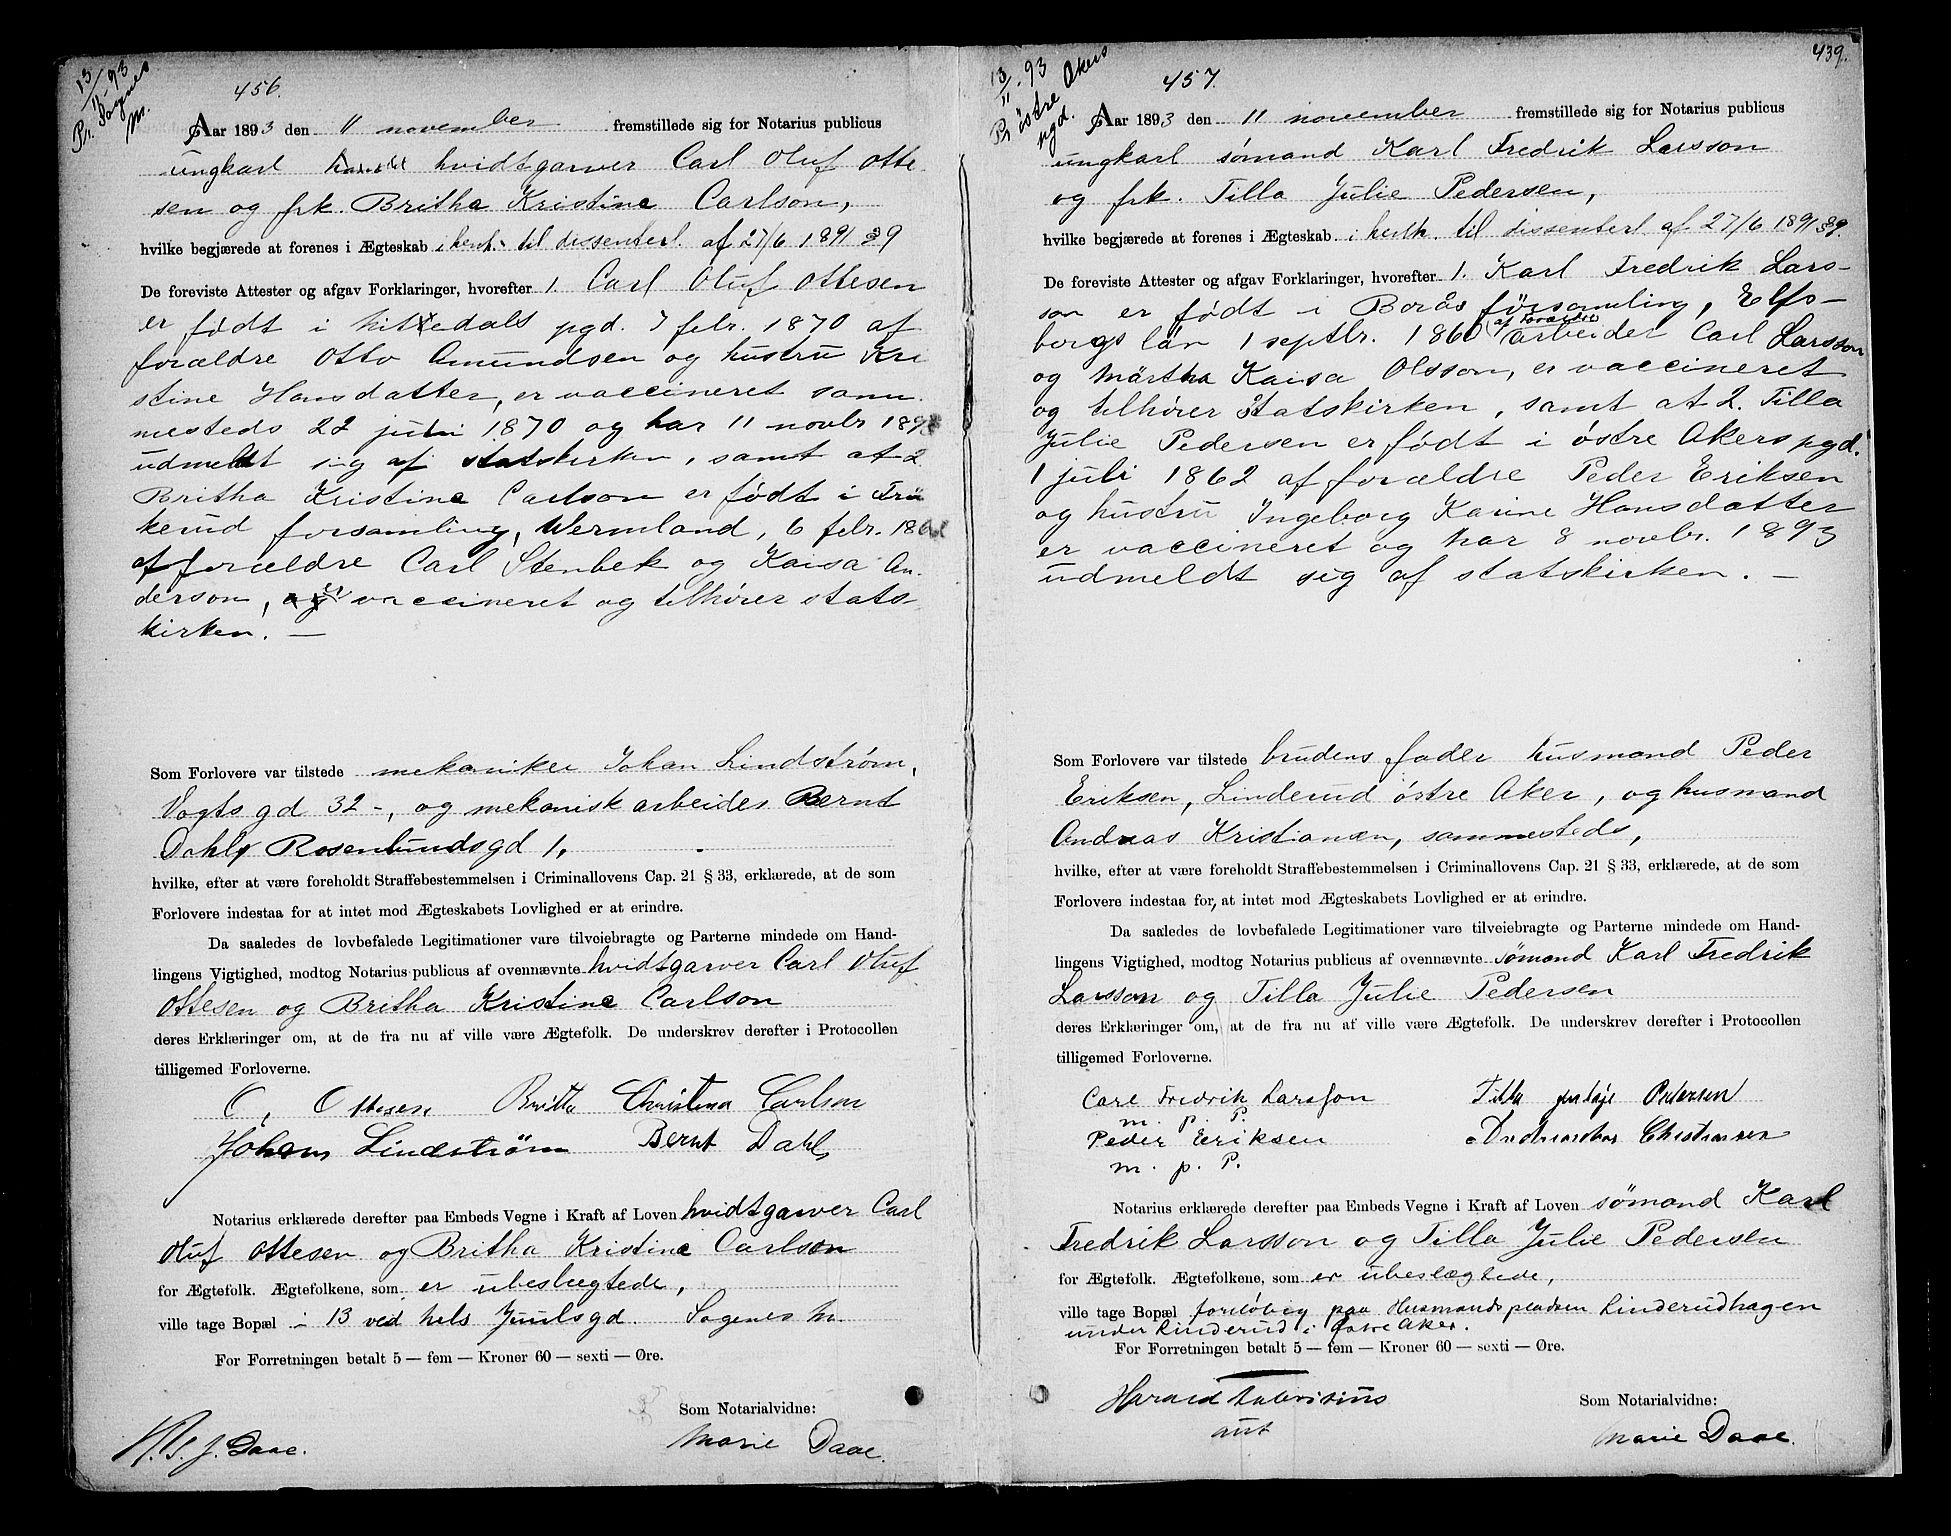 13/11-93
Pr. Sagenes
m.
456.
Aar 1893 den 11 november fremstillede sig for Notarius publicus
ungkarl hvidtgarver Carl Oluf Otte-
sen og frk. Britha Kristine Carlson,
hvilke begjærede at forenes i Ægteskab i henh. til dissenterl. af 27/6 1891 § 9
De foreviste Attester og afgav Forklaringer, hvorefter 1. Carl Oluf Ottesen
er født i hitterdals pgd. 7 febr. 1870 af
forældre Otto Amundsen og hustru Kri
stine Hansdatter, er vaccineret sam-
mesteds 22 juni 1870 og har 11 novbr 1893
udmeldt sig af statskirken, samt at 2
Britha Kristine Carlson er født i
kerud forsamling, Wermland, 6 febr.
af forældre Carl Stenbek og Kaisa An-
derson, er vaccineret og tilhører stats-
kirken. —
Som Forlovere var tilstede mekaniker Johan Lindstrøm,
Vogts gd 32 -, og mekanisk arbeider Bernt
Dahl, Rosenlundsgd 1,
hvilke, efter at være foreholdt Straffebestemmelsen i Criminallovens Cap. 21 § 33, erklærede, at de som
Forlovere indestaa for at intet mod Ægteskabets Lovlighed er at erindre.
Da saaledes de lovbefalede Legitimationer vare tilveiebragte og Parterne mindede om Hand-
lingens Vigtighed, modtog Notarius publicus af ovennævnte hvidtgarver Carl Oluf
Ottesen og Britha Kristine Carlson
deres Erklæringer om, at de fra nu af ville være Ægtefolk. De underskrev derefter i Protocollen
tilligemed Forloverne.
C. Ottesen Britta Christina Carlson
Johan Lindström Bernt Dahl,
Notarius erklærede derefter paa Embeds Vegne i Kraft af Loven hvidtgarver Carl
Oluf Ottesen og Britha Kristine Carlson
for Ægtefolk. Ægtefolkene, som er ubeslægtede,
ville tage Bopæl i 13 ved hels Juulsgd. Sagenes m
For Forretningen betalt 5 — fem — Kroner 60 — sexti — Øre.
Som Notarialvidne:
Daae.
Marie Daae.
439.
13/11. 93
Pr østre Akers
pgd.
457.
Aar 1893 den 11 november fremstillede sig for Notarius publicus
ungkarl sømand Karl Fredrik Larsson
og frk. Tilla Julie Pedersen,
hvilke begjærede at forenes i Ægteskab i henh. til dissenterl. af 27/6 1891 § 9.
De foreviste Attester og afgav Forklaringer, hvorefter 1. Karl Fredrik Lars-
son er født i Borås församling, Elfs-
borgs län 1 septbr. 1860 af forældre arbeider Carl Larsson
og Märtha Kaisa Olsson, er vaccineret
og tilhører statskirken, samt at 2. Tilla
Julie Pedersen er født i østre Akers pgd.
1 juli 1862 af forældre Peder Eriksen
og hustru Ingeborg Karine Hansdatter
er vaccineret og har 8 novbr. 1893
udmeldt sig af statskirken. —
Som Forlovere var tilstede brudens fader husmand Peder
Eriksen, Linderud østre Aker, og husmand
Andreas Kristiansen, sammesteds,
hvilke, efter at være foreholdt Straffebestemmelsen i Criminallovens Cap. 21 § 33, erklærede, at de som
Forlovere indestaa for, at intet mod Ægteskabets Lovlighed er at erindre.
Da saaledes de lovbefalede Legitimationer vare tilveiebragte og Parterne mindede om Hand-
lingens Vigtighed, modtog Notarius publicus af ovennævnte sømand Karl Fredrik
Larsson og Tilla Julie Pedersen
deres Erklæringer om, at de fra nu af ville være Ægtefolk. De underskrev derefter i Protocollen
tilligemed Forloverne.
Carl Fredrik Larsson Tilla Pedersen
m. p. P.
Peder Eriksen Christiansen
m. p. P.
Notarius erklærede derefter paa Embeds Vegne i Kraft af Loven sømand Karl
Fredrik Larsson og Tilla Julie Pedersen
for Ægtefolk. Ægtefolkene, som er ubeslægtede,
ville tage Bopæl foreløbig paa Husmandspladsen Linderudhagen
under Linderud i østre Aker.
For Forretningen betalt 5 — fem — Kroner 60 — sexti — Øre.
Som Notarialvidne:
Harald
aut
Marie Daae.